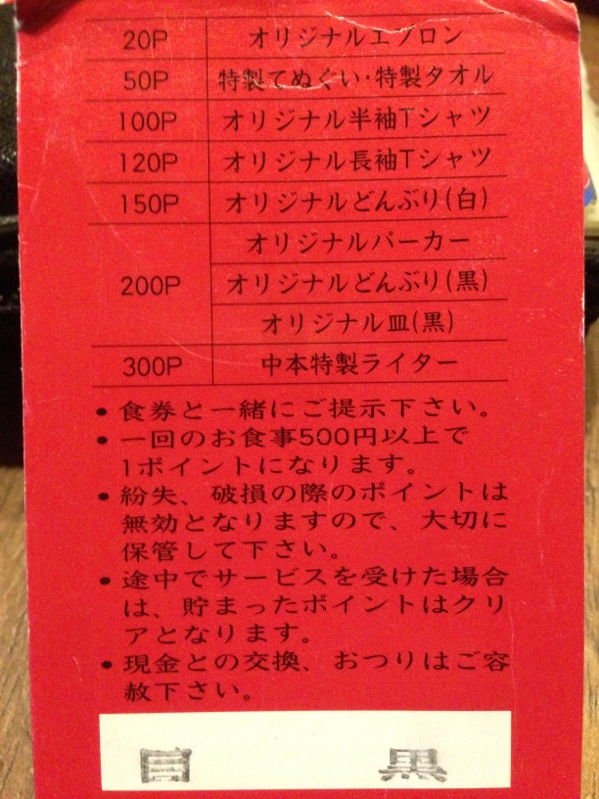 20P オリジナルエプロン
50P 特製てぬぐい・特製タオル
100P オリジナル半袖Tシャツ
120P オリジナル長袖Tシャツ
150P オリジナルどんぶり(白)
オリジナルパーカー
200P オリジナルどんぶり(黒)
オリジナル皿(黒)
300P 中本特製ライター
•食券と一緒にご提示下さい。
•一回のお食事500円以上で
1ポイントになります。
•紛失、破損の際のポイントは
無効となりますので、大切に
保管して下さい。
•途中でサービスを受けた場合
は、貯まったポイントはクリ
アとなります。
•現金との交換、おつりはご容
赦下さい。
目 黒